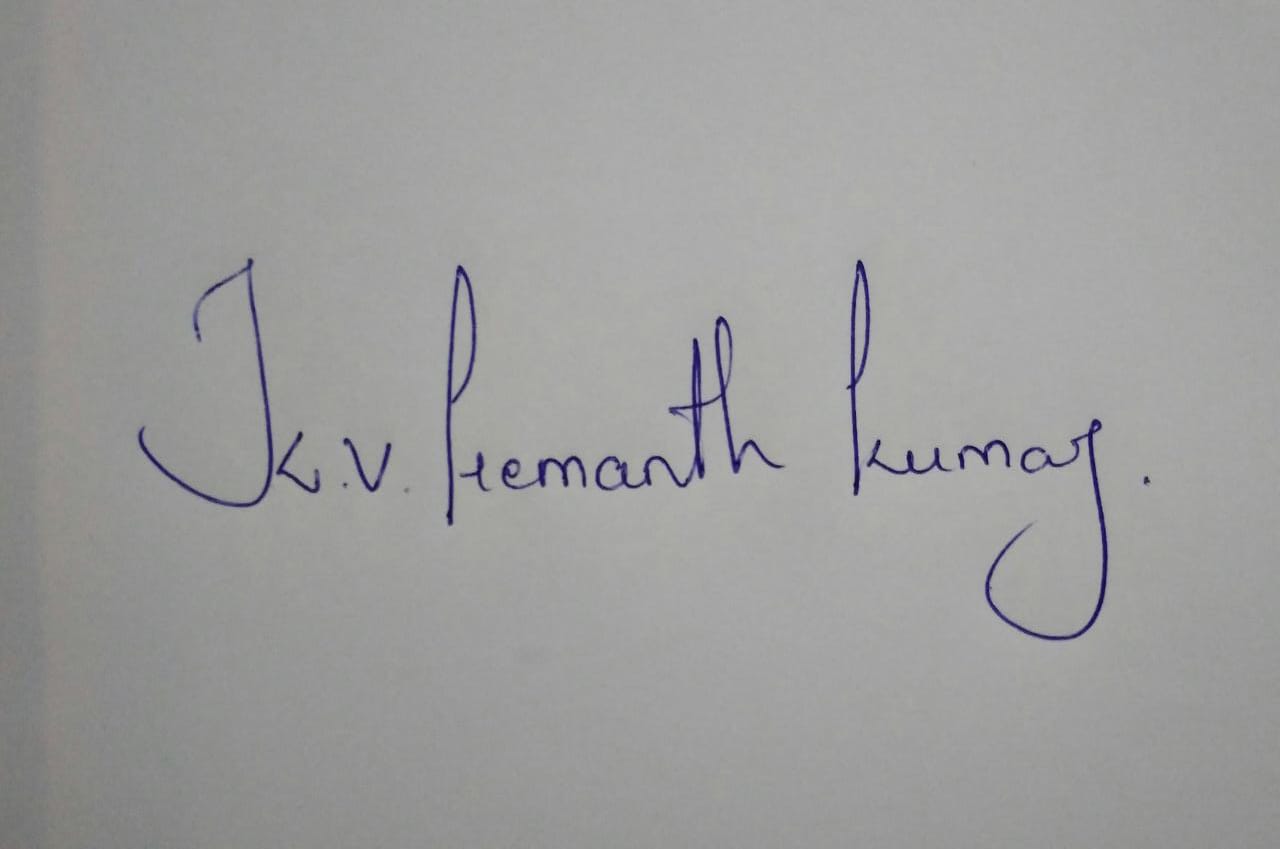 K.V. Hemanth Kumar.